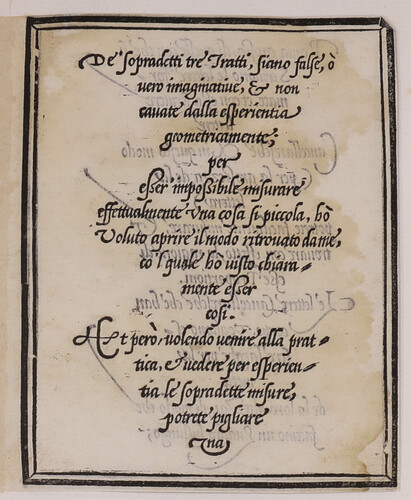 De' sopradetti tre Tratti, siano false, ò
vero imaginatiue, & non
cauate dalla esperientia
geometricamente;
per
esser' impossibile misurare
effettualmente Vna cosa si piccola, hò
Voluto aprire il modo ritrouato da me,
co'l quale hò uisto chiara-
mente esser
cosi.
Et però, uolendo uenire alla prat-
tica, & uedere per esperien-
tia le sopradette misure,
potrete pigliare
Vna